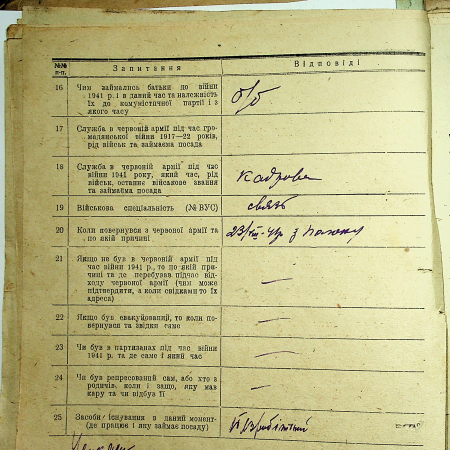 №№ п-п. Запитання Відповіді
16 Чим займались батьки до війни
1941 р. і в даний час та належність
їх до комуністичної партії і з
якого часу
б/б
17 Служба в червоній армії під час гро-
мадянської війни 1917—22 років,
рід військ та займаєма посада
18 Служба в червоній армії під час
війни 1941 року, який час, рід
військ, останнє військове звання
та займаєма посада
кадрова
19 Військова спеціальність (№ ВУС)
связь
20 Коли повернувся з червоної армії та
по якій причині
23/VIII-41р з полону
21 Якщо не був в червоній армії під
час війни 1941 р., то по якій при-
чині та де перебував підчас від-
ходу червоної армії (чим може
підтвердити, а коли свідками то їх
адреса)
—
22 Якщо був евакуйований, то коли по-
вернувся та звідки саме
—
23 Чи був в партизанах під час війни
1941 р. та де саме і який час
—
24 Чи був репресований сам, або хто з
родичів, коли і защо, яку мав
кару та чи відбув її
—
25 Засоби існування в даний момент-
(де працює і яку займає посаду)